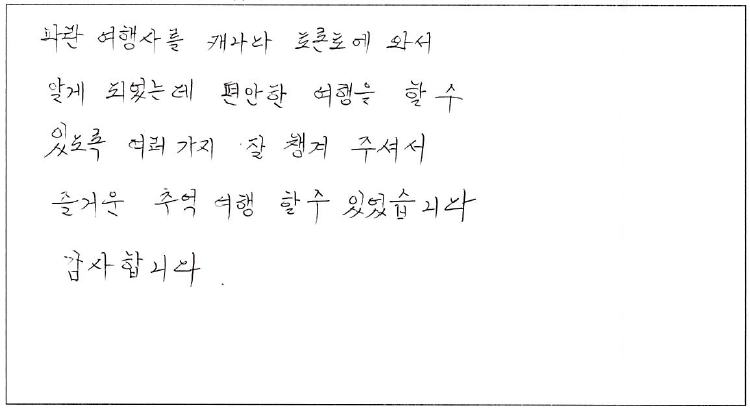 파란 여행사를 캐나다 토론토에 와서
알게 되었는데 편안한 여행을 할 수
있도록 여러가지 잘 챙겨 주셔서
즐거운 추억 여행 할 수 있었습니다
감사합니다.